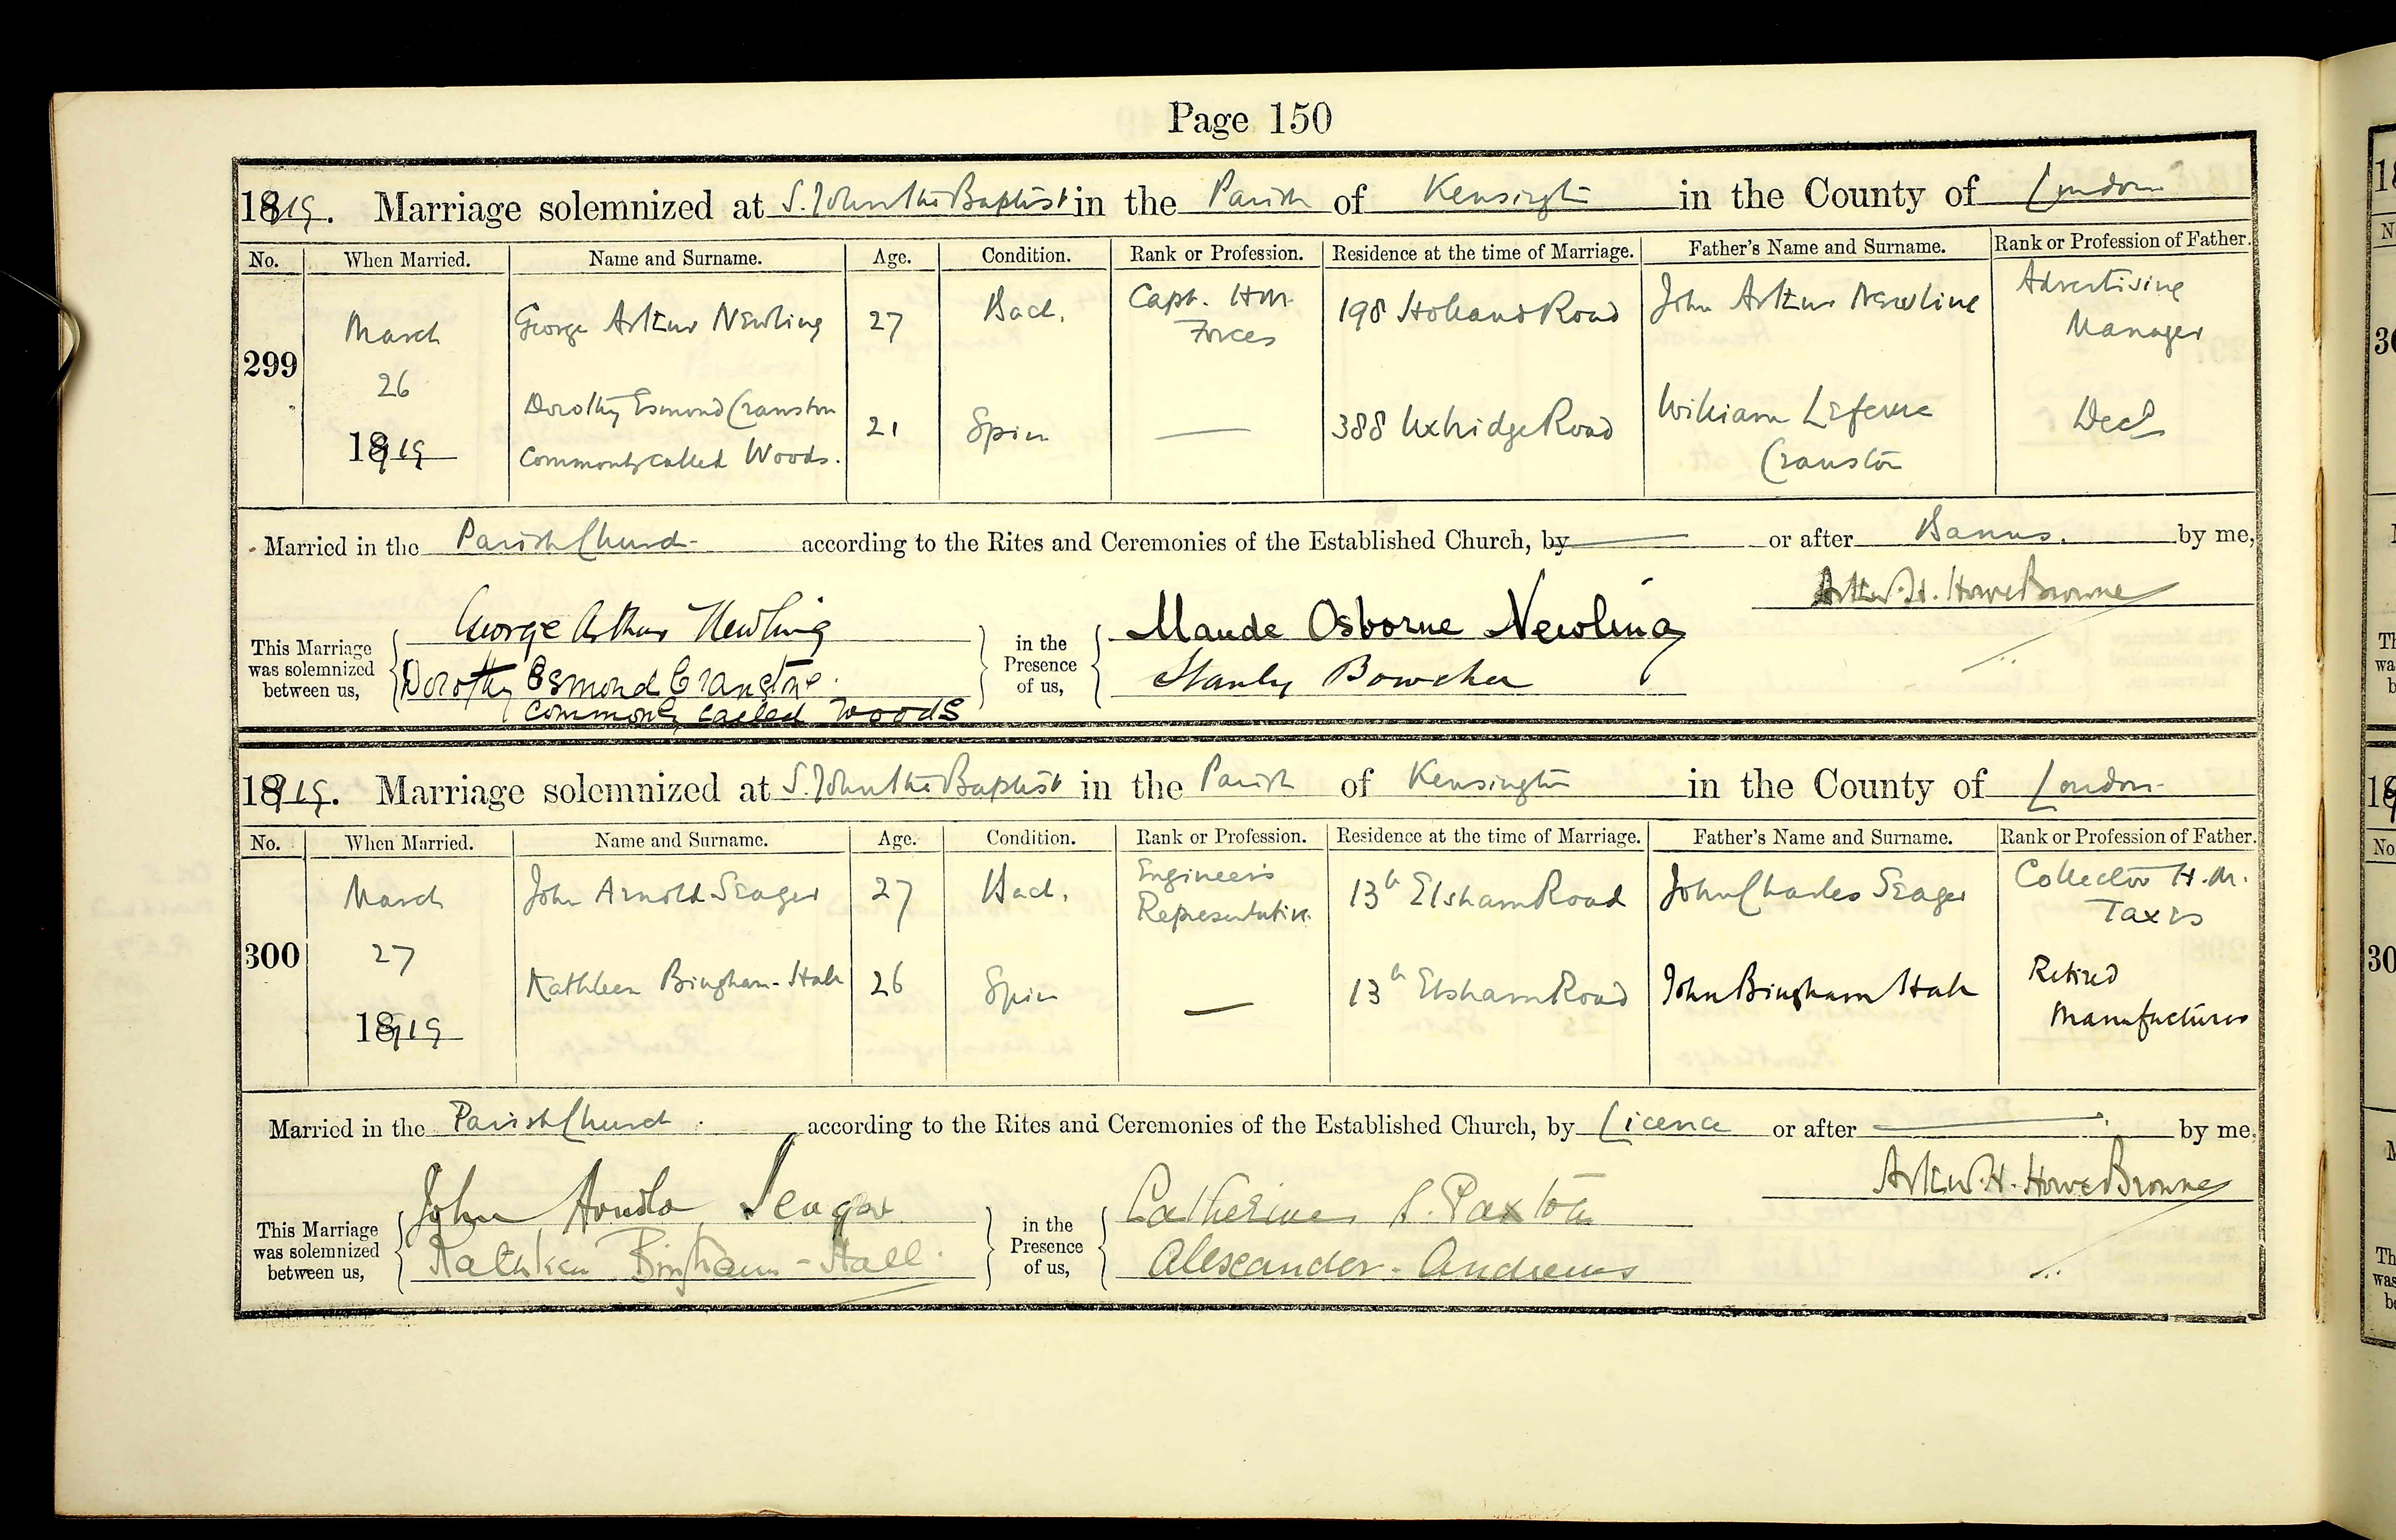 Page 150
1919. Marriage solemnized at S. John the Baptist in the Parish of Kensington in the County of London
No. When Married. Name and Surname. Age. Condition. Rank or Profession. Residence at the time of Marriage. Father's Name and Surname. Rank or Profession of Father.
299
March
26
1919
George Arthur Newling 27 Bach. Capt. H.M. Forces 198 Holland Road John Arthur Newling Advertising Manager
Dorothy Esmond Cranston
Commonly called Woods. 21 Spin — 388 Uxbridge Road William Lefevre Cranston Decd
Married in the Parish Church according to the Rites and Ceremonies of the Established Church, by — or after Banns. by me,
Arthur. H. Howe Browne
This Marriage was solemnized between us,
George Arthur Newling
Dorothy Esmond Cranstone.
commonly called Woods
in the Presence of us,
Maude Osborne Newling
Stanley Bowcher
1919. Marriage solemnized at S. John the Baptist in the Parish of Kensington in the County of London
No. When Married. Name and Surname. Age. Condition. Rank or Profession. Residence at the time of Marriage. Father's Name and Surname. Rank or Profession of Father.
300
March
27
1919
John Arnold Seager 27 Bach. Engineers Representative 13 Elsham Road John Charles Seager Collector H.M. Taxes
Kathleen Bingham-Hall 26 Spin — 13 Elsham Road John Bingham Hall Retired Manufacturer
Married in the Parish Church. according to the Rites and Ceremonies of the Established Church, by Licence or after — by me,
Arthur. H. Howe Browne
This Marriage was solemnized between us,
John Arnold Seager
Kathleen Bingham-Hall.
in the Presence of us,
Catherine S. Paxton
Alexander. Andrews